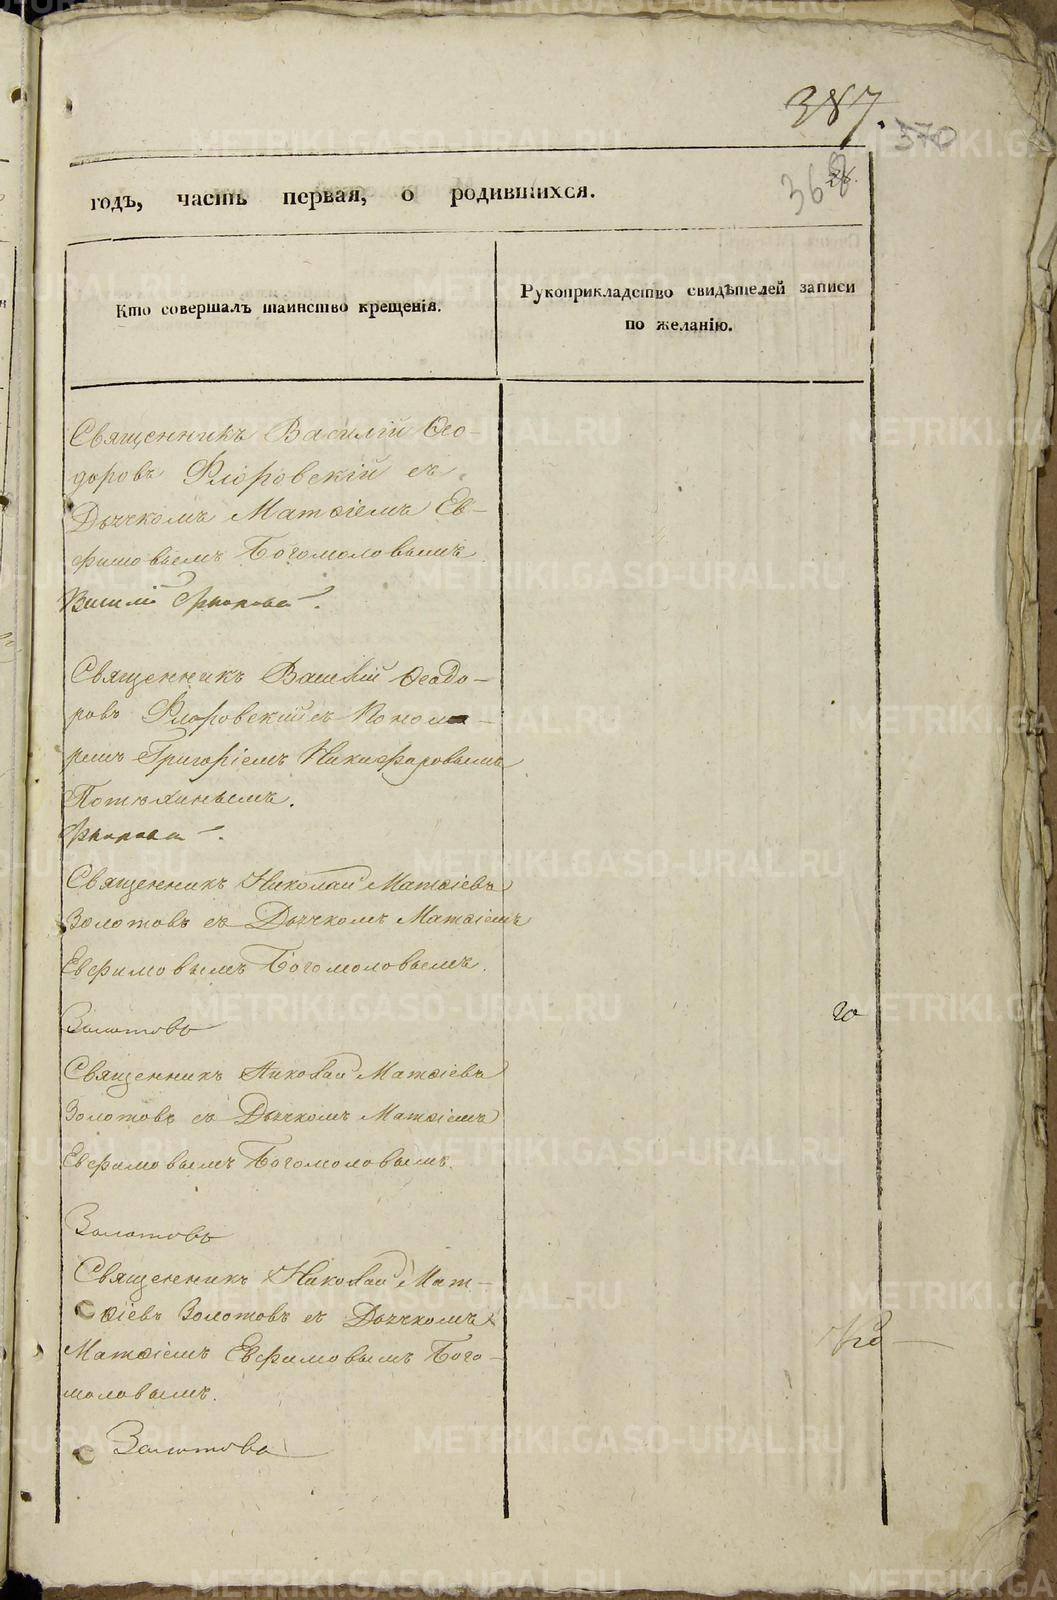 387.
370
368
годъ, часть первая, о родившихся.
Кто совершалъ таинство крещенія.
Рукоприкладство свидѣтелей записи
по желанію.
Священникъ Василій Ѳео-
доровъ Флоровскій съ
Дьячкомъ Матѳіемъ Ев-
фимовымъ Богомоловымъ
Василій
Священникъ Василій Ѳеодо-
ровъ Флоровскій съ Понома-
ремъ Григоріемъ Никифоровымъ
Потюхинымъ.
Священникъ Николай Матѳіевъ
Золотовъ съ Дьячкомъ Матѳіемъ
Евфимовымъ Богомоловымъ.
Золотовъ
20
Священникъ Николай Матѳіевъ
Золотовъ съ Дьячкомъ Матѳіемъ
Евфимовымъ Богомоловымъ.
Золотовъ
Священникъ Николай Мат-
ѳіевъ Золотовъ съ Дьячкомъ
Матѳіемъ Евфимовымъ Бого-
моловымъ.
Золотовъ
METRIKI.GASO-URAL.RU